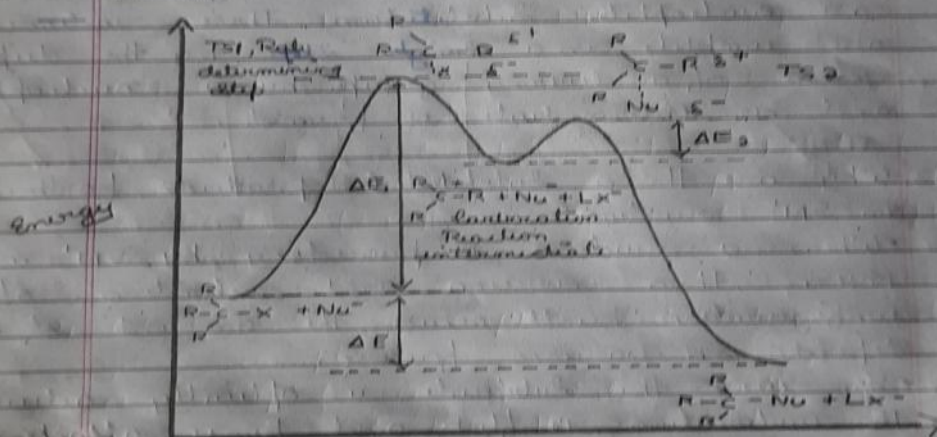 R
TS1, Rate
determining
step
R - C - R δ+
X δ-
R
C - R δ+
R
Nu δ-
TS2
ΔE2
Energy
ΔE1
R +
C-R + Nu- + Lx-
R
Carbocation
Reaction
intermediate
R
R-C-X + Nu-
R
ΔE
R
R-C-Nu + Lx-
R